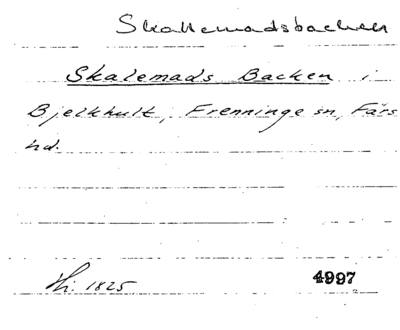 Skallemadsbacken
Skalemads Backen i
Bjelkhult, Frenninge sn, Färs
hd.
Hi: 1825 4997